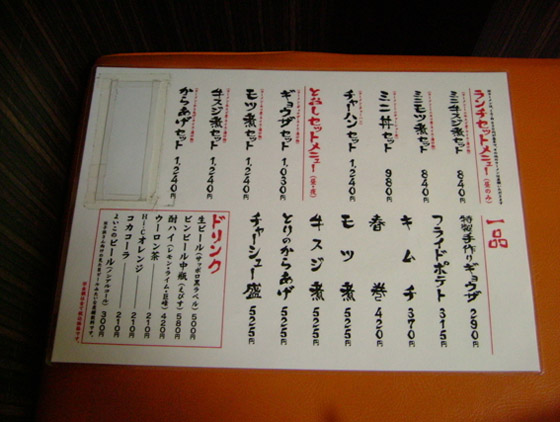 ランチセットメニュー（昼のみ）
ミニ牛スジ煮セット 840円
ミニモツ煮セット 840円
ミニ丼セット 980円
チャーハンセット 1,240円
とんこつセットメニュー（昼・夜）
ギョウザセット 1,030円
モツ煮セット 1,240円
牛スジ煮セット 1,240円
からあげセット 1,240円
一品
特製手作りギョウザ 290円
フライドポテト 315円
キムチ 370円
春巻 420円
モツ煮 525円
牛スジ煮 525円
とりのからあげ 525円
チャーシュー盛 525円
ドリンク
生ビール（サッポロ黒ラベル） 500円
ビンビール中瓶（えびす） 580円
酎ハイ（レモン・ライム・巨峰） 420円
ウーロン茶 210円
Hi-Cオレンジ 210円
コカコーラ 210円
よいこのビール（ノンアルコール） 300円